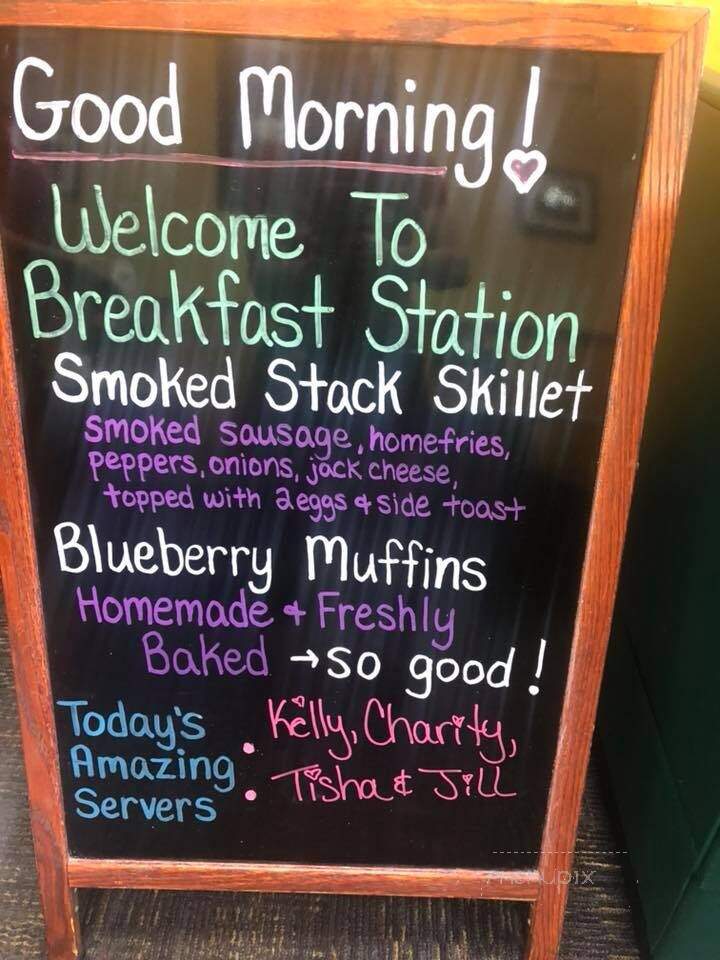 Good Morning!
Welcome To
Breakfast Station
Smoked Stack Skillet
smoked sausage, homefries,
peppers, onions, jack cheese,
topped with 2eggs & side toast
Blueberry Muffins
Homemade & Freshly
Baked → so good!
Today's
Amazing
Servers :
Kelly, Charity,
Tisha & Jill
menupix